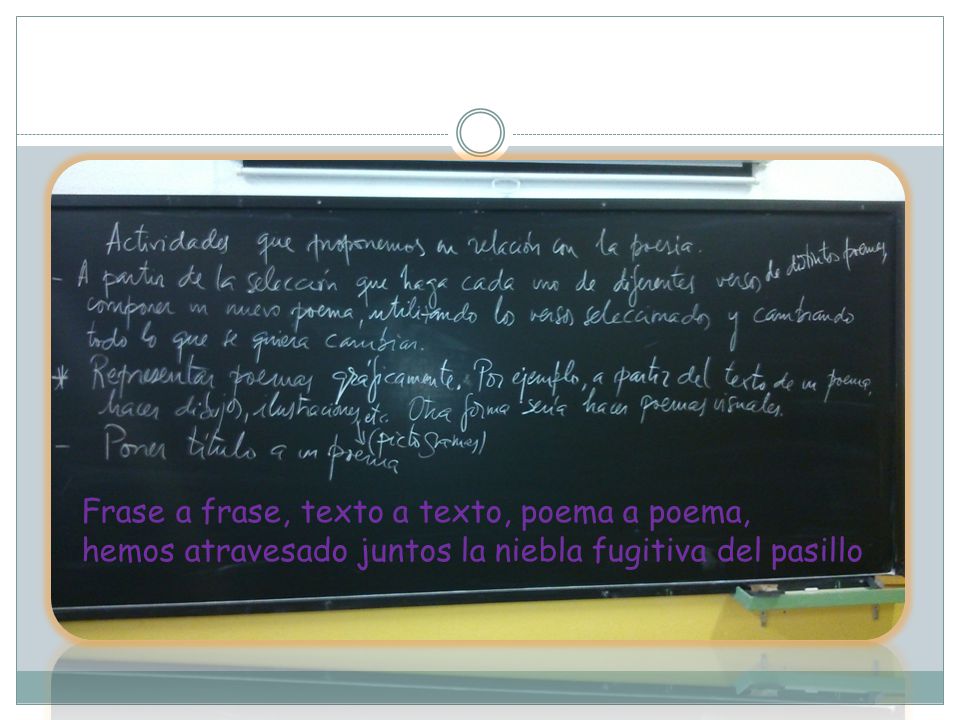 Actividades que proponemos en relación con la poesía.
- A partir de la selección que haga cada uno de diferentes versos de distintos poemas,
componer un nuevo poema, utilizando los versos seleccionados y cambiando
todo lo que se quiera cambiar.
* Representar poemas gráficamente. Por ejemplo, a partir del texto de un poema,
hacer dibujos, ilustraciones, etc. Otra forma sería hacer poemas visuales.
(pictogramas)
- Poner título a un poema
Frase a frase, texto a texto, poema a poema,
hemos atravesado juntos la niebla fugitiva del pasillo